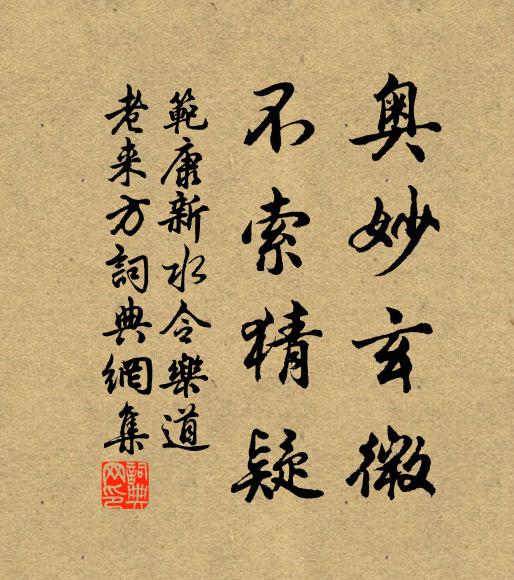 奥妙玄微
不索猜疑
範康新水令樂道
老来方詞典網集
詞典
网印